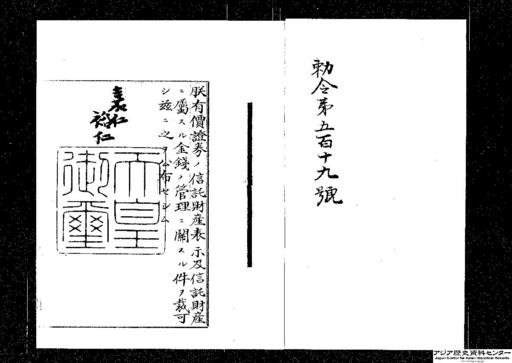 勅令第五百十九號
朕有價證券ノ信託財産表示及信託財産
ニ屬スル金錢ノ管理ニ關スル件ヲ裁可
シ茲ニ之ヲ公布セシム
嘉仁
裕仁
天皇
御璽
アジア歴史資料センター
Japan Center for Asian Historical Records